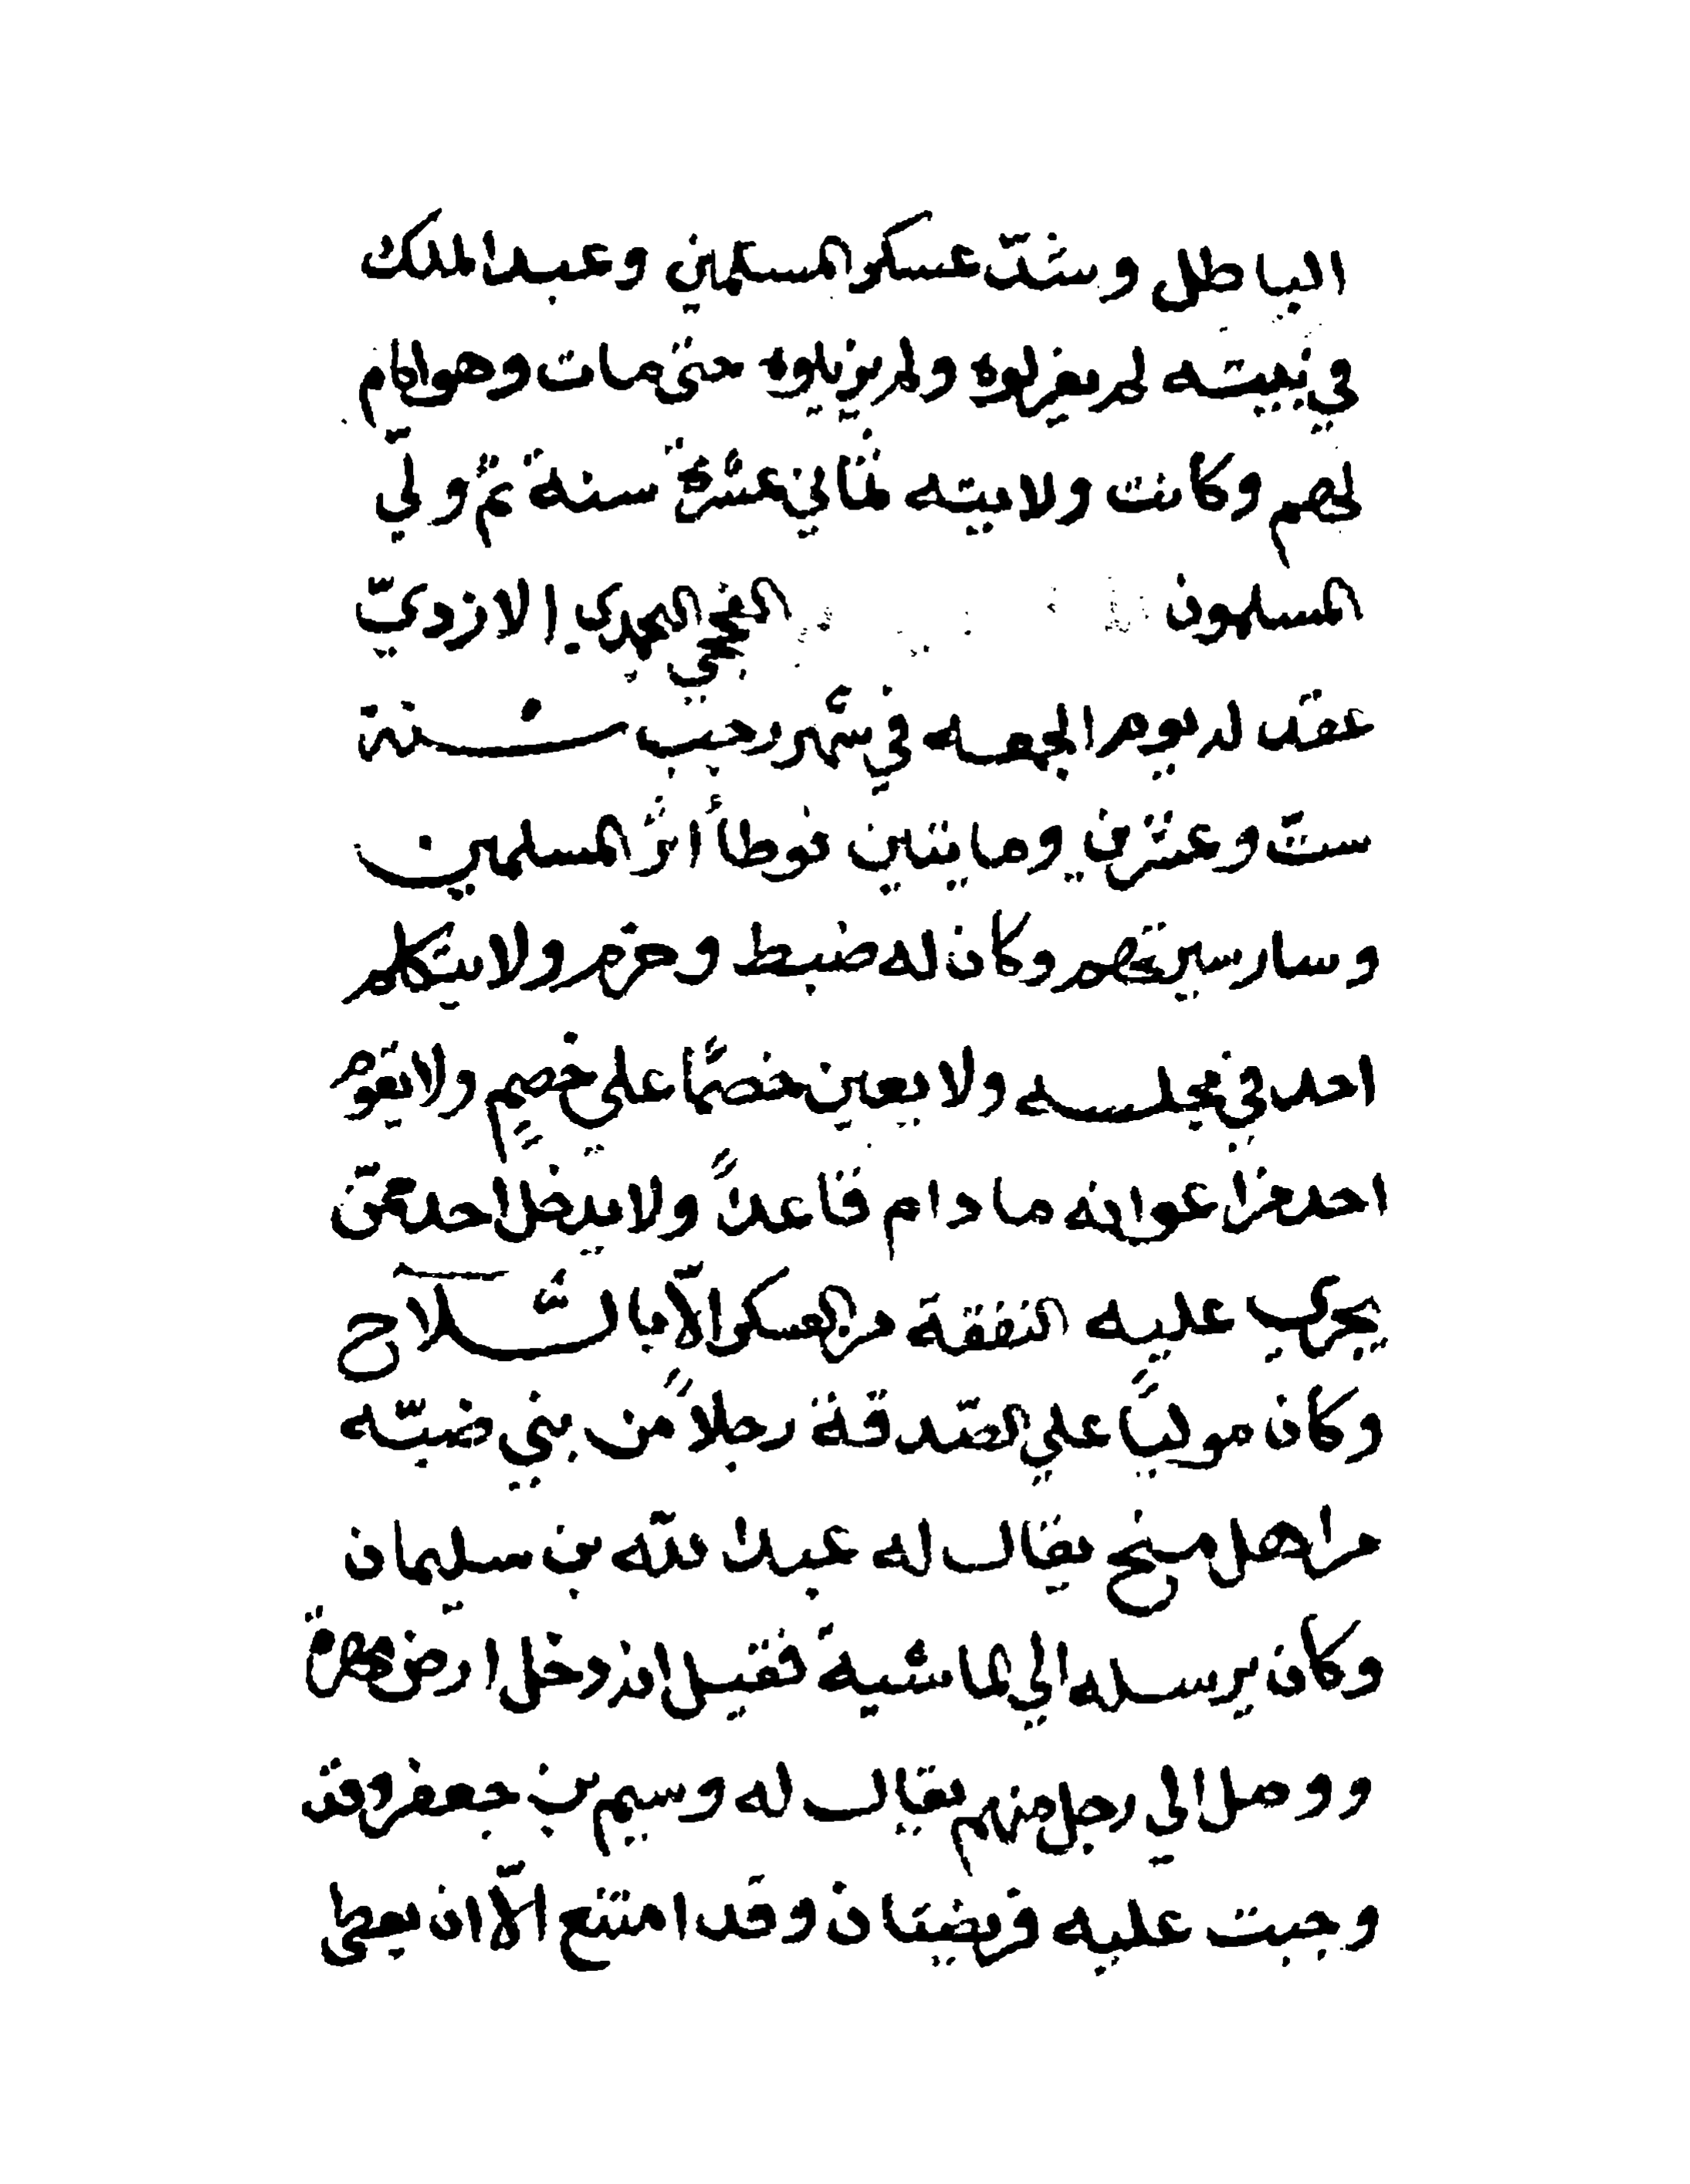 الباطل وشدّ عسكر المسلمين وعبد الملك
في بيته لم يعزلوه ولم يزيلوه حتى مات وهو امام
لهم وكانت ولايته ثماني عشرة سنة ثمّ ولّي
المسلمون الفجحي اليحمدي الازديّ
عقد له يوم الجمعه في شهر رجب سنة
ستّ وعشرين ومايتين فوطأ أثر المسلمين
وسار سيرتهم وكان له ضبط وحزم ولا يتكلم
احد في مجلسه ولا يعين خصمًا على خصمٍ ولا يقوم
احد من اعوانه ما دام قاعداً ولا يدخل احد ممّن
يجري عليه النفقة من العسكر الاّ بالسّلاح
وكان موليًا علي الصّدقة رجلاً من بني ضبّه
من اهل منح يقال له عبد الله بن سليمان
وكان يرسله الي الماشية فقيل انه دخل ارض مهرة
ووصل الي رجل منهم يقال له وسيم بن جعفر وقد
وجبت عليه فريضتان وقد امتنع الاّ ان يعطي